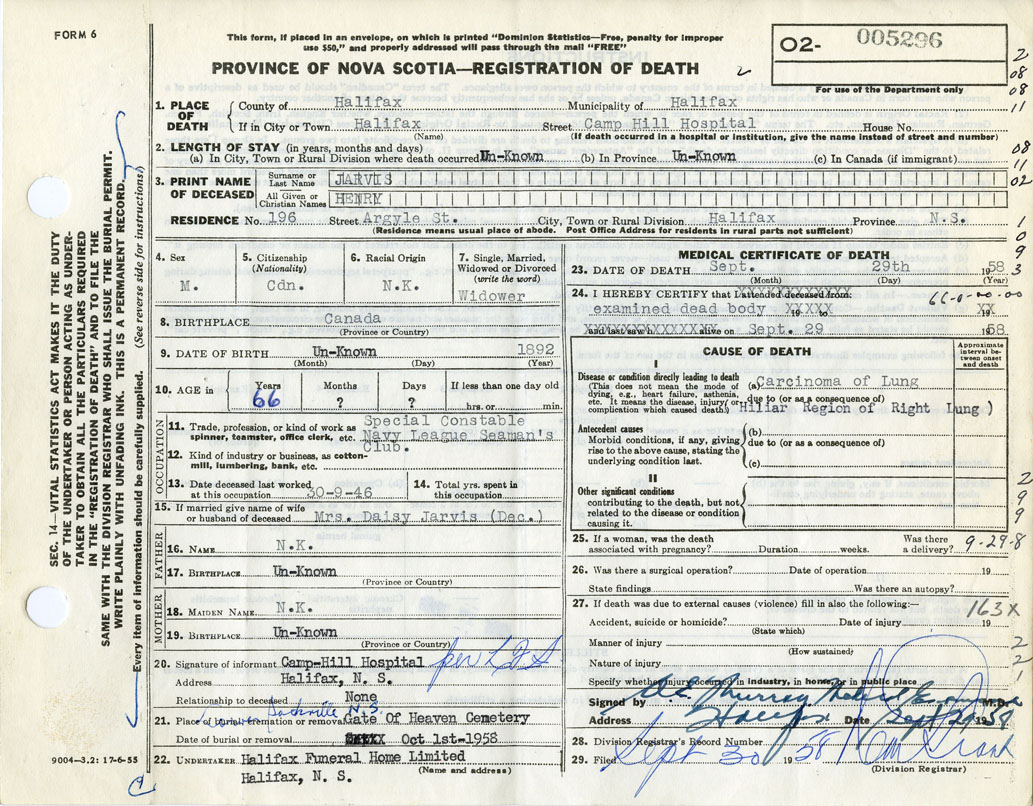 FORM 6
This form, if placed in an envelope, on which is printed "Dominion Statistics—Free, penalty for improper
use $50," and properly addressed will pass through the mail "FREE"
PROVINCE OF NOVA SCOTIA—REGISTRATION OF DEATH
2
O2- 005296
For use of the Department only
SEC. 14—VITAL STATISTICS ACT MAKES IT THE DUTY
OF THE UNDERTAKER OR PERSON ACTING AS UNDER-
TAKER TO OBTAIN ALL THE PARTICULARS REQUIRED
IN THE "REGISTRATION OF DEATH" AND TO FILE THE
SAME WITH THE DIVISION REGISTRAR WHO SHALL ISSUE THE BURIAL PERMIT.
WRITE PLAINLY WITH UNFADING INK. THIS IS A PERMANENT RECORD.
Every item of information should be carefully supplied. (See reverse side for instructions)
1. PLACE OF DEATH
County of Halifax Municipality of Halifax
If in City or Town Halifax Street Camp Hill Hospital House No.
(Name) (If death occurred in a hospital or institution, give the name instead of street and number)
2. LENGTH OF STAY (in years, months and days)
(a) In City, Town or Rural Division where death occurred Un-Known (b) In Province Un-Known (c) In Canada (if immigrant)
3. PRINT NAME OF DECEASED
Surname or Last Name JARVIS
All Given or Christian Names HENRY
RESIDENCE No. 196 Street Argyle St. City, Town or Rural Division Halifax Province N.S.
(Residence means usual place of abode. Post Office Address for residents in rural parts not sufficient)
4. Sex
M.
5. Citizenship
(Nationality)
Cdn.
6. Racial Origin
N.K.
7. Single, Married,
Widowed or Divorced
(write the word)
Widower
8. BIRTHPLACE Canada
(Province or Country)
9. DATE OF BIRTH Un-Known 1892
(Month) (Day) (Year)
10. AGE in Years Months Days If less than one day old
66 ? ? hrs. or min.
OCCUPATION
11. Trade, profession, or kind of work as
spinner, teamster, office clerk, etc.
Special Constable
Navy League Seaman's
Club.
12. Kind of industry or business, as cotton-
mill, lumbering, bank, etc.
13. Date deceased last worked
at this occupation 30-9-46
14. Total yrs. spent in
this occupation
15. If married give name of wife
or husband of deceased Mrs. Daisy Jarvis (Dec.)
FATHER
16. NAME N.K.
17. BIRTHPLACE Un-Known
(Province or Country)
MOTHER
18. MAIDEN NAME N.K.
19. BIRTHPLACE Un-Known
(Province or Country)
20. Signature of informant Camp-Hill Hospital per
Address Halifax, N. S.
Relationship to deceased None
Sackville N.S.
21. Place of burial cremation or removal Gate Of Heaven Cemetery
Date of burial or removal Oct 1st-1958
22. UNDERTAKER Halifax Funeral Home Limited
Halifax, N. S. (Name and address)
9004—3.2: 17-6-55
MEDICAL CERTIFICATE OF DEATH
23. DATE OF DEATH Sept. 29th 1958
(Month) (Day) (Year)
24. I HEREBY CERTIFY that I attended deceased from:
66-0-00-00
examined dead body XXXXX 19 to XX
and last saw h alive on Sept. 29 1958
CAUSE OF DEATH
Approximate
interval be-
tween onset
and death
I
Disease or condition directly leading to death
(This does not mean the mode of
dying, e.g., heart failure, asthenia,
etc. It means the disease, injury or
complication which caused death.)
(a) Carcinoma of Lung
due to (or as a consequence of)
Hiliar Region of Right Lung )
Antecedent causes
Morbid conditions, if any, giving
rise to the above cause, stating the
underlying condition last.
(b)
due to (or as a consequence of)
(c)
II
Other significant conditions
contributing to the death, but not
related to the disease or condition
causing it.
25. If a woman, was the death
associated with pregnancy? Duration weeks. Was there
a delivery? 9-29-8
26. Was there a surgical operation? Date of operation 19
State findings Was there an autopsy?
27. If death was due to external causes (violence) fill in also the following:—
163X
Accident, suicide or homicide? Date of injury 19
(State which)
Manner of injury
(How sustained)
Nature of injury
Specify whether injury occurred in industry, in home, or in public place
Signed by Murray M.D.
Address Halifax Date Sept 29 1958
28. Division Registrar's Record Number
29. Filed Sept 30 1958
(Division Registrar)
2
08
08
11
08
11
02
1
0
9
3
2
9
9
2
2
1